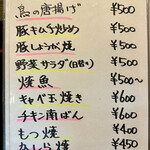 鳥の唐揚げ ¥500
豚キムチ炒め ¥500
豚しょうが焼 ¥500
野菜サラダ(日替り) ¥500
焼魚 ¥500~
キャベ玉焼き ¥600
チキン南ばん ¥600
もつ焼 ¥400
かしら焼 ¥450